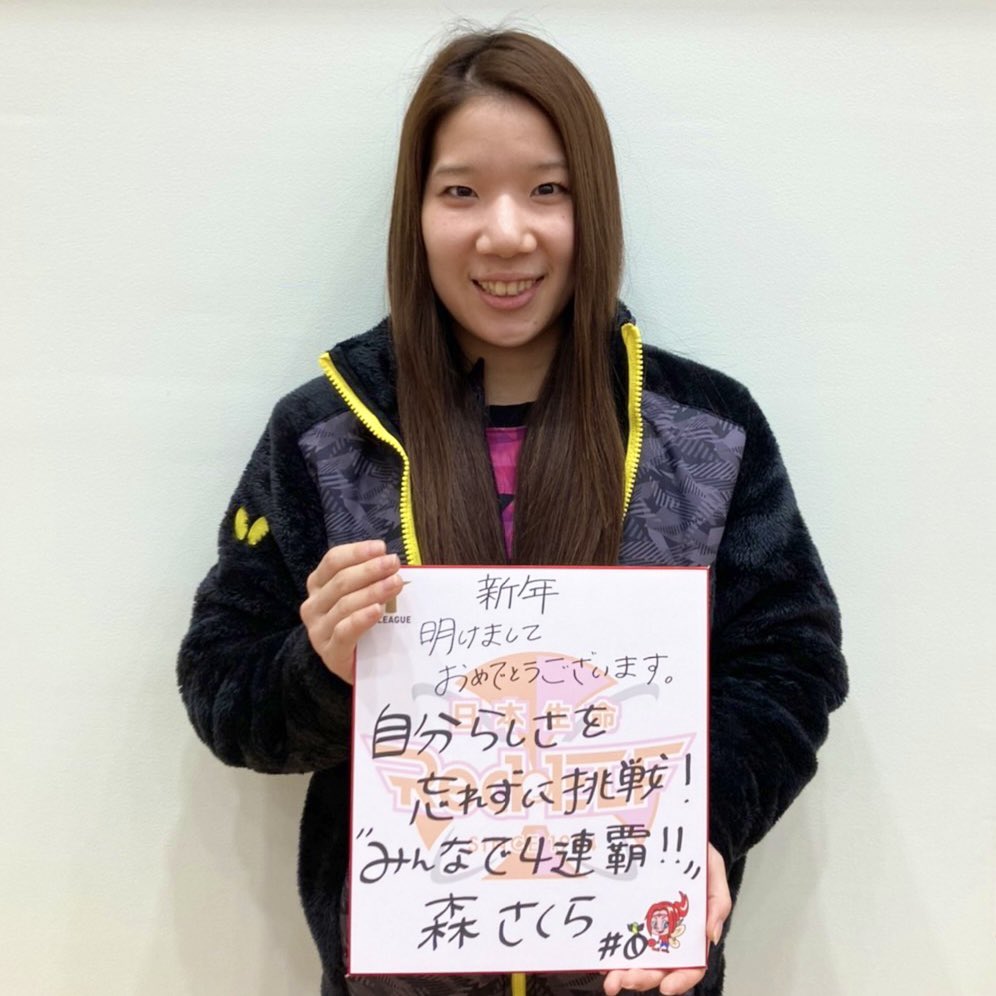 LEAGUE
新年
明けまして
おめでとうございます。
日本生命
自分らしさを
忘れずに挑戦!
"みんなで4連覇!!"
森さくら